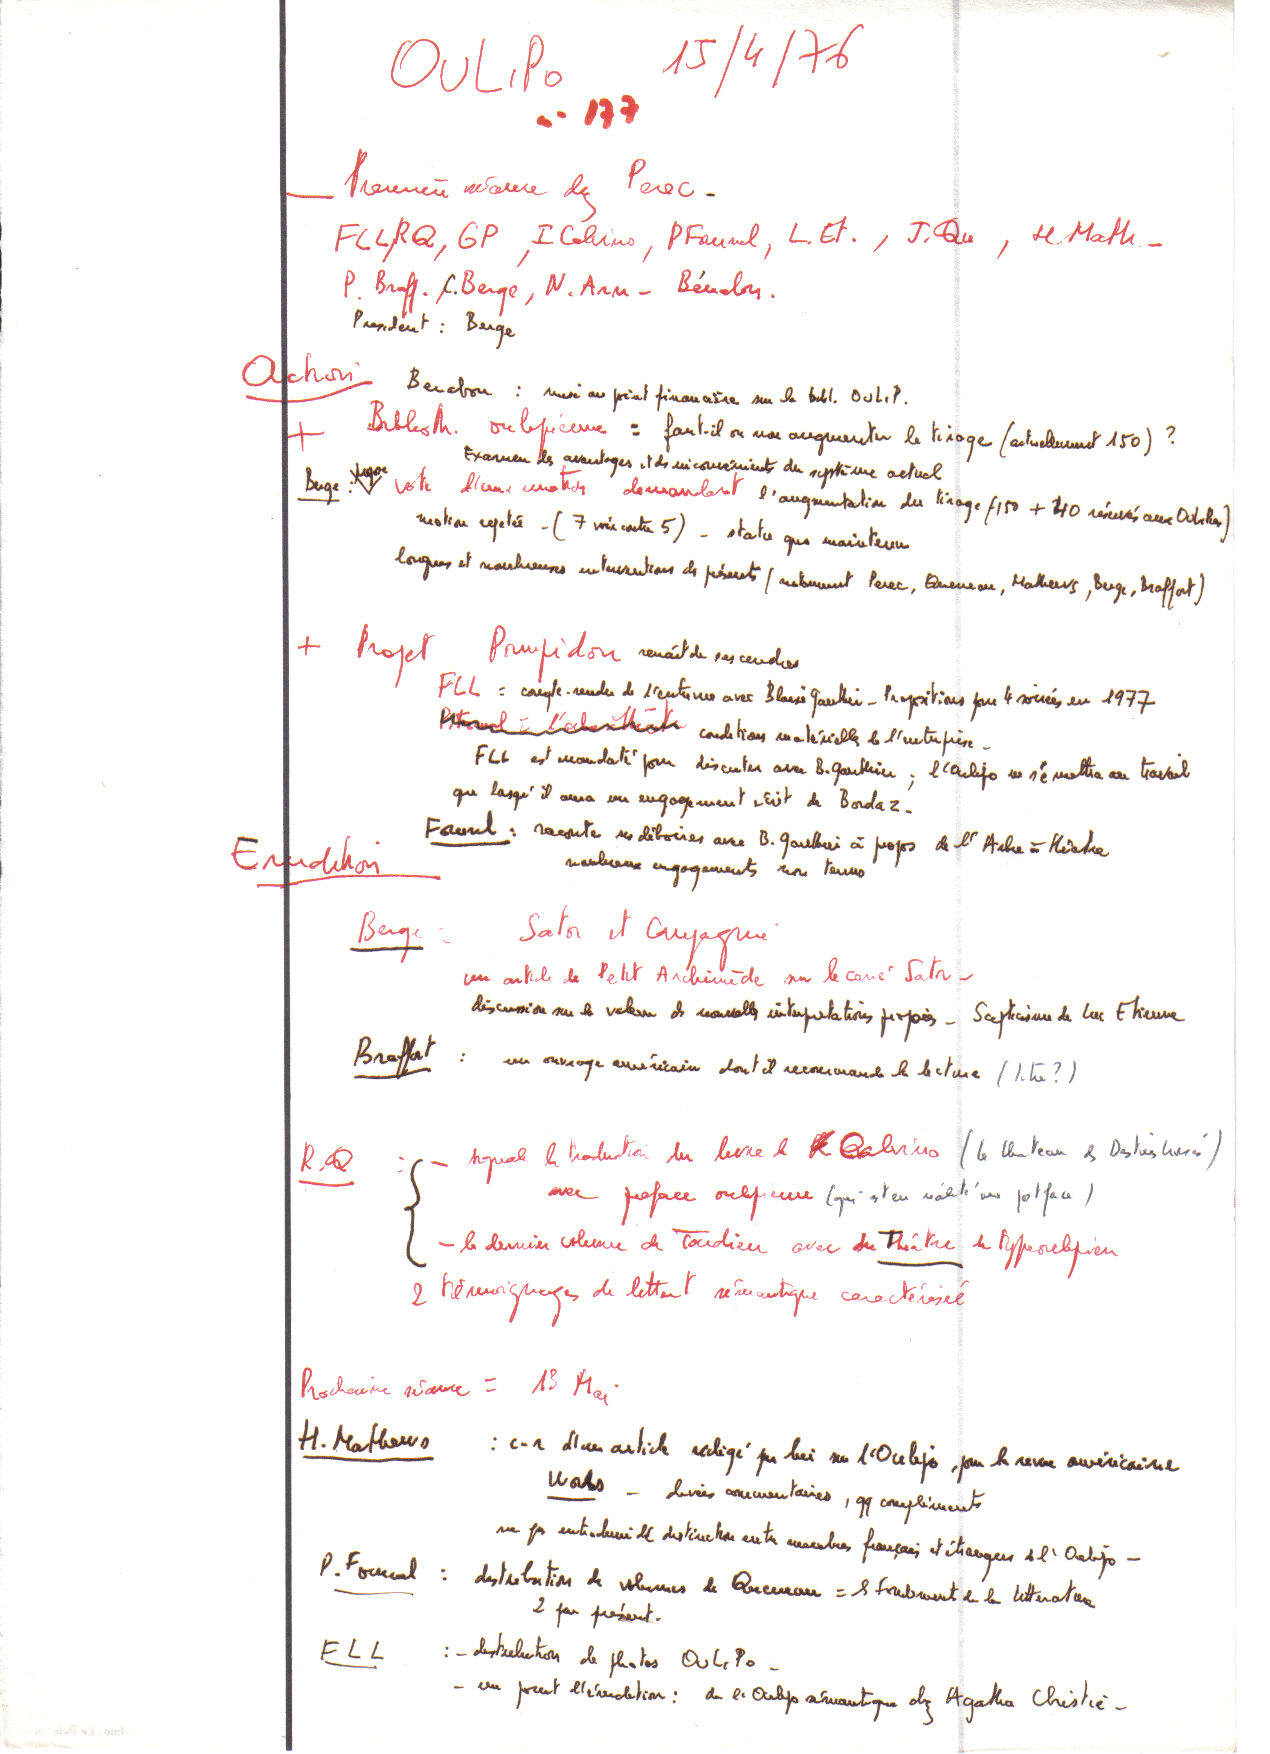 OULIPO 15/4/76
n° 177
— Première séance chez Perec -
FLL, RQ, GP, I Calvino, P Fournel, L. Et., J. Que, H. Math -
P. Braff., C. Berge, N. Arn - Bénabou.
Président : Berge
Action
Benabou : mise au point financière sur la bibl. OULIP.
+ Biblioth. oulipienne = faut-il ou non augmenter le tirage (actuellement 150) ?
Examen des avantages et des inconvénients du système actuel
Berge : vote d'une motion demandant l'augmentation du tirage (150 + 40 réservés aux Oulipiens)
motion rejetée - (7 voix contre 5) - statu quo maintenu
longues et nombreuses interventions des présents (notamment Perec, Queneau, Mathews, Berge, Braffort)
+ Projet Pompidou renaît de ses cendres
FLL = compte-rendu de l'entrevue avec Blaise Gauthier - Propositions pour 4 soirées en 1977
conditions matérielles de l'entreprise -
FLL est mandaté pour discuter avec B. Gauthier ; l'Oulipo ne se mettra au travail
que lorsqu'il aura un engagement écrit de Bordaz -
Fournel : raconte ses déboires avec B. Gauthier à propos de l'Arbre à théâtre
nombreux engagements non tenus
Erudition
Berge : Sator et Compagnie
un article de Petit Archimède sur le carré Sator -
discussion sur la valeur des nouvelles interprétations proposées - Scepticisme de Luc Etienne
Braffort : un ouvrage américain dont il recommande la lecture (titre ?)
R.Q : - signale la traduction du livre de Calvino (le Chateau des Destins Croisés)
avec préface oulipienne (qui est en réalité une postface)
- le dernier volume de Tardieu avec du Théâtre hypoulipien
2 témoignages de lettent sémantique caractérisé
Prochaine séance = 13 Mai
H. Mathews : c-r d'un article rédigé par lui sur l'Oulipo, pour la revue américaine
Works - divers commentaires, qq compléments
ne pas introduire de distinction entre membres français et étrangers de l'Oulipo -
P. Fournel : distribution de volumes de Queneau = les fondements de la littérature
2 par présent.
FLL : - distribution de photos OULIPO -
- un point d'érudition : de l'Oulipo sémantique chez Agatha Christie -